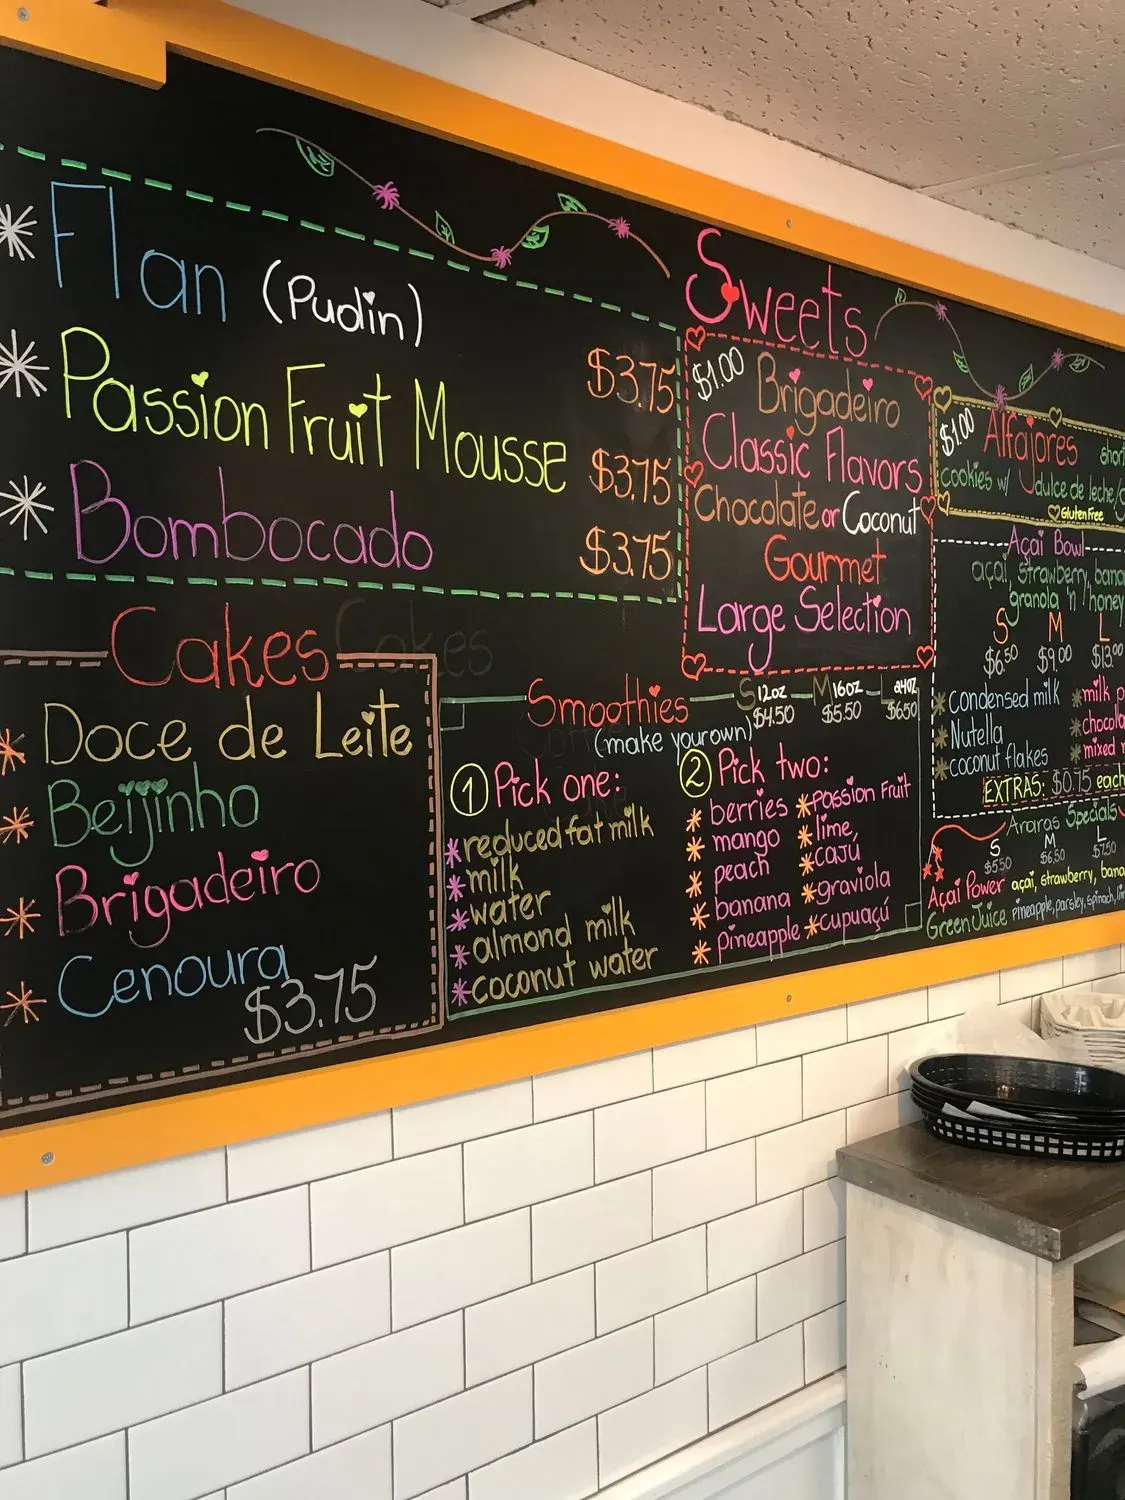 Flan (Pudin)
$3.75
Passion Fruit Mousse
$3.75
Bombocado
$3.75
Cakes
Doce de Leite
Beijinho
Brigadeiro
Cenoura
$3.75
Smoothies
S 12oz M 16oz L 24oz
$4.50 $5.50 $6.50
(make your own)
1 Pick one:
reduced fat milk
milk
water
almond milk
coconut water
2 Pick two:
berries
mango
peach
banana
pineapple
passion fruit
lime,
cajú
graviola
cupuaçú
Sweets
$1.00 Brigadeiro
Classic Flavors
Chocolate or Coconut
Gourmet
Large Selection
$1.00 Alfajores
cookies w/ dulce de leche/
Gluten Free
Açai Bowl
açai, strawberry,
granola 'n' honey
S M L
$6.50 $9.00 $13.00
Condensed milk
Nutella
coconut flakes
milk
mixed
EXTRAS: $0.75 each
Araras Specials
S M L
$5.50 $6.50 $7.50
Açai Power açai, strawberry,
Green Juice pineapple, parsley, spinach,